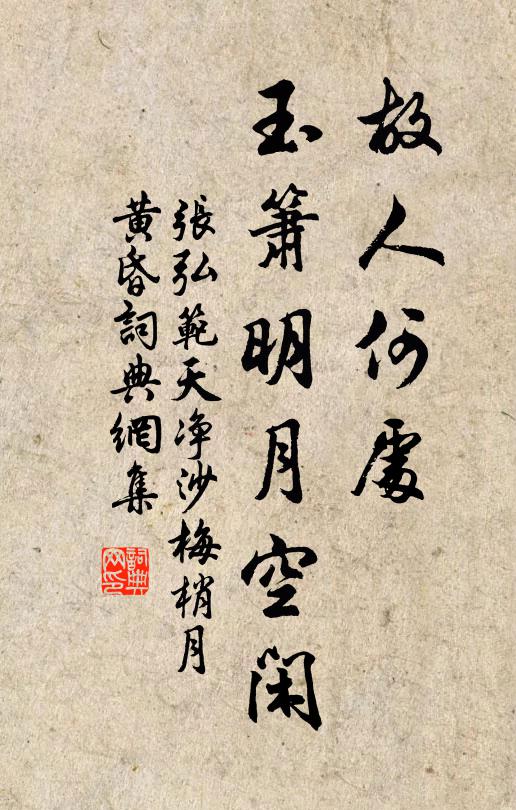 故人何處
玉簫明月空閑
張弘範天净沙梅梢月
黃昏詞典網集
詞典
网印